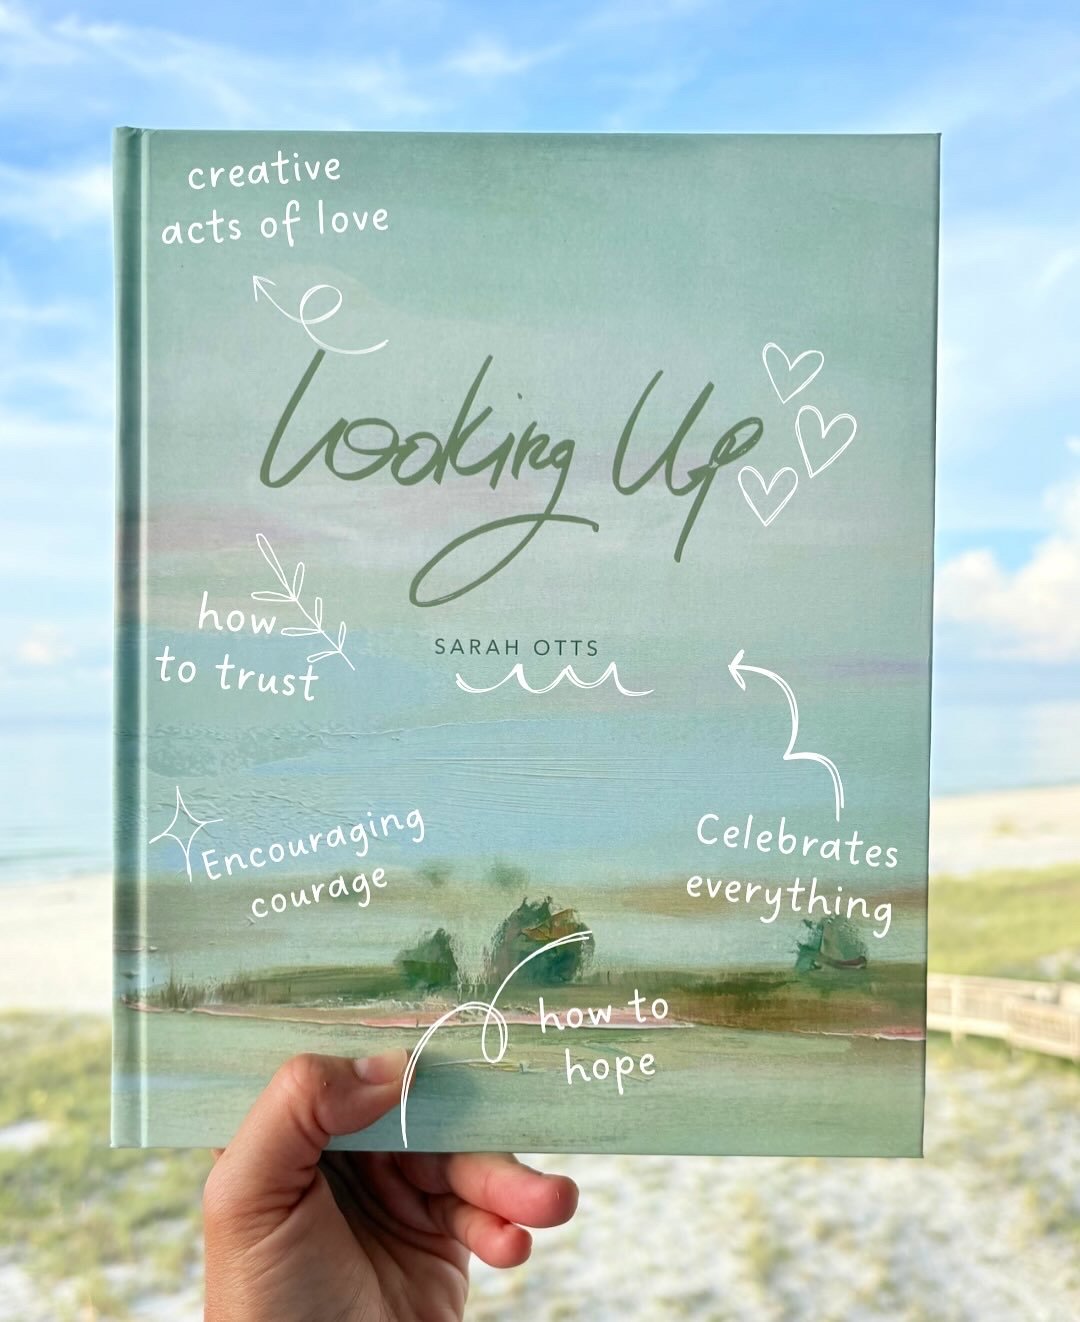 creative
acts of love
Looking Up
how
to trust
SARAH OTTS
Encouraging
courage
Celebrates
everything
how to
hope